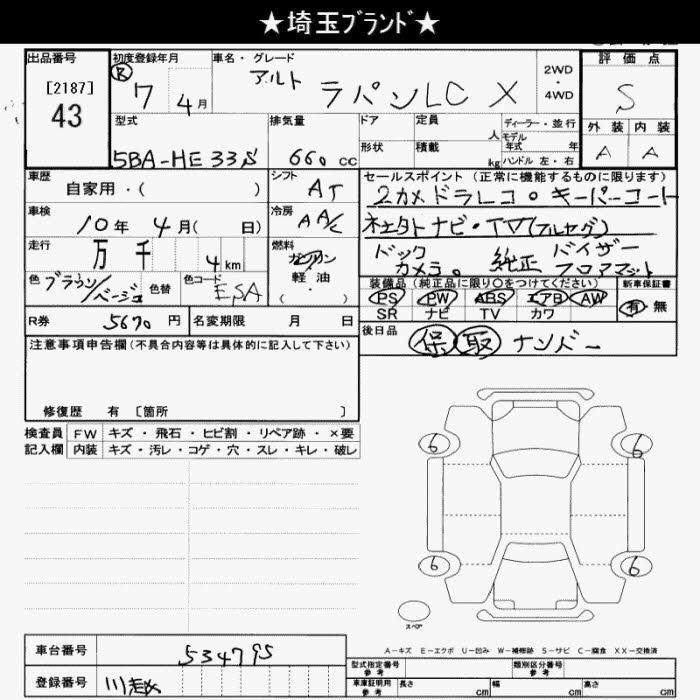 ★埼玉ﾌﾞﾗﾝﾄﾞ★
出品番号
[2187]
43
初度登録年月
Ⓡ 7年 4月
車名・グレード
アルト ラパンLC X
2WD
・
4WD
評価点
S
外装 内装
A A
型式
5BA-HE33S
排気量
660 cc
ドア
形状
定員 人
積載 kg
ディーラー・並行
モデル
年式 年
ハンドル 左・右
車歴
自家用・( )
シフト
AT
セールスポイント(正常に機能するものに限ります)
2カメドラレコ。キーパーコート
ネェタトナビ・TV(フルセグ)
ドック
カメラ。 純正 バイザー
フロアマット
車検
10年 4月( 日)
冷房
AAC
走行
万 千 4km
燃料
ガソリン
軽油
( ・ )
色
ブラウン/ベージュ
色替
色コード
ESA
装備品(純正品に限り〇をつけてください)
PS PW ABS エアB AW
SR ナビ TV カワ
新車保証書
有 無
R券 5670円
名変期限 月 日
後日品
保 取 ナンバー
注意事項申告欄(不具合内容等は具体的に記入して下さい)
修復歴 有 [箇所 ]
検査員 FW キズ・飛石・ヒビ割・リペア跡・×要
記入欄 内装 キズ・汚レ・コゲ・穴・スレ・キレ・破レ
6 6
6 6
スペア
A-キズ E-エクボ U-凹み W-補修跡 S-サビ C-腐食 XX-交換済
車台番号 534795
登録番号
型式指定番号
参考
類別区分番号
参考
車庫証明用
参考
長さ cm 幅 cm 高さ cm